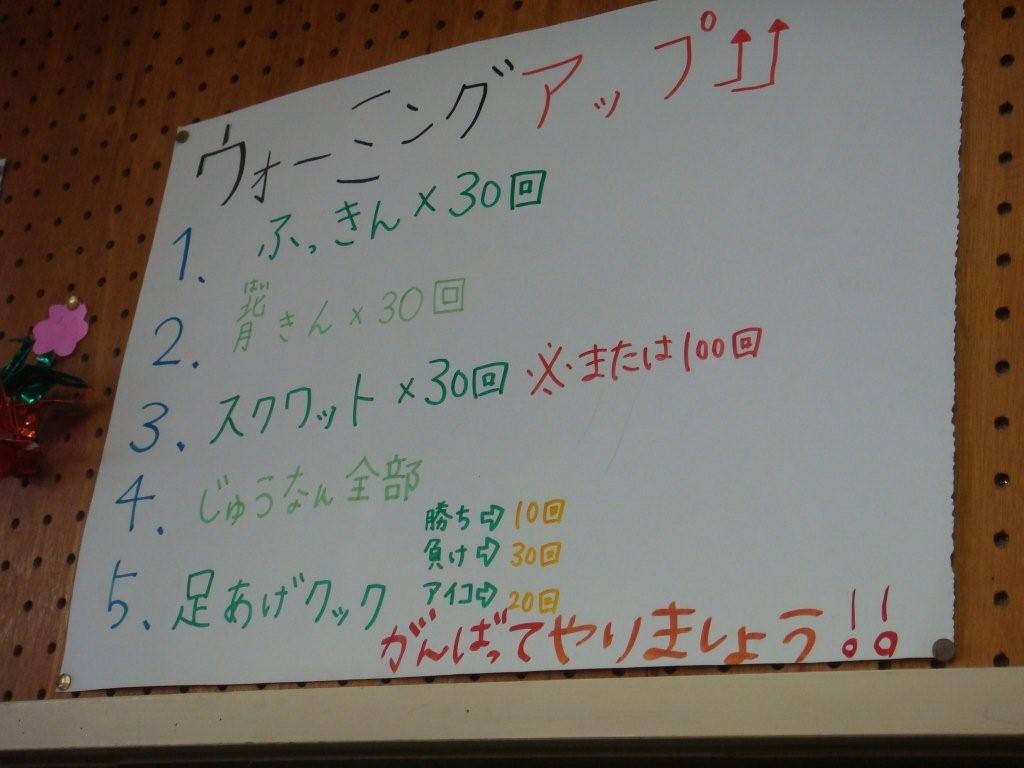 ウォーミングアップ⇈
1. ふっきん×30回
2. 背きん×30回
3. スクワット×30回 ※または100回
4. じゅうなん全部
5. 足あげクック
勝ち⇨10回
負け⇨30回
アイコ⇨20回
がんばってやりましょう!!